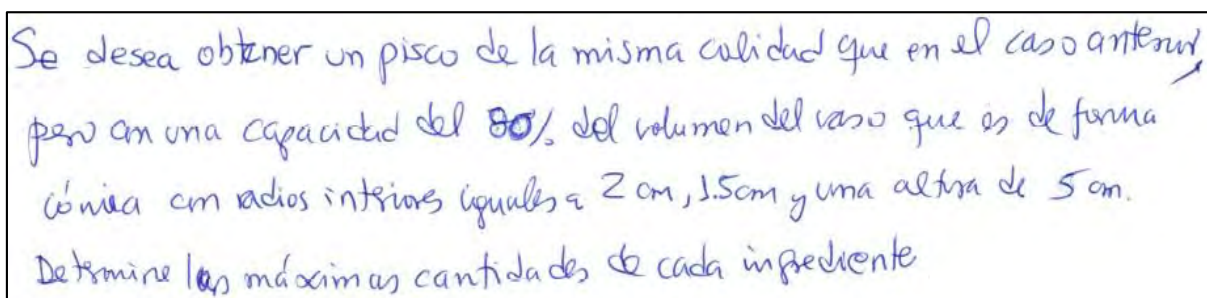 Se desea obtener un pisco de la misma calidad que en el caso anterior,
pero con una capacidad del 80% del volumen del vaso que es de forma
cónica con radios interiores iguales a 2 cm, 1.5cm y una altura de 5 cm.
Determine las máximas cantidades de cada ingrediente